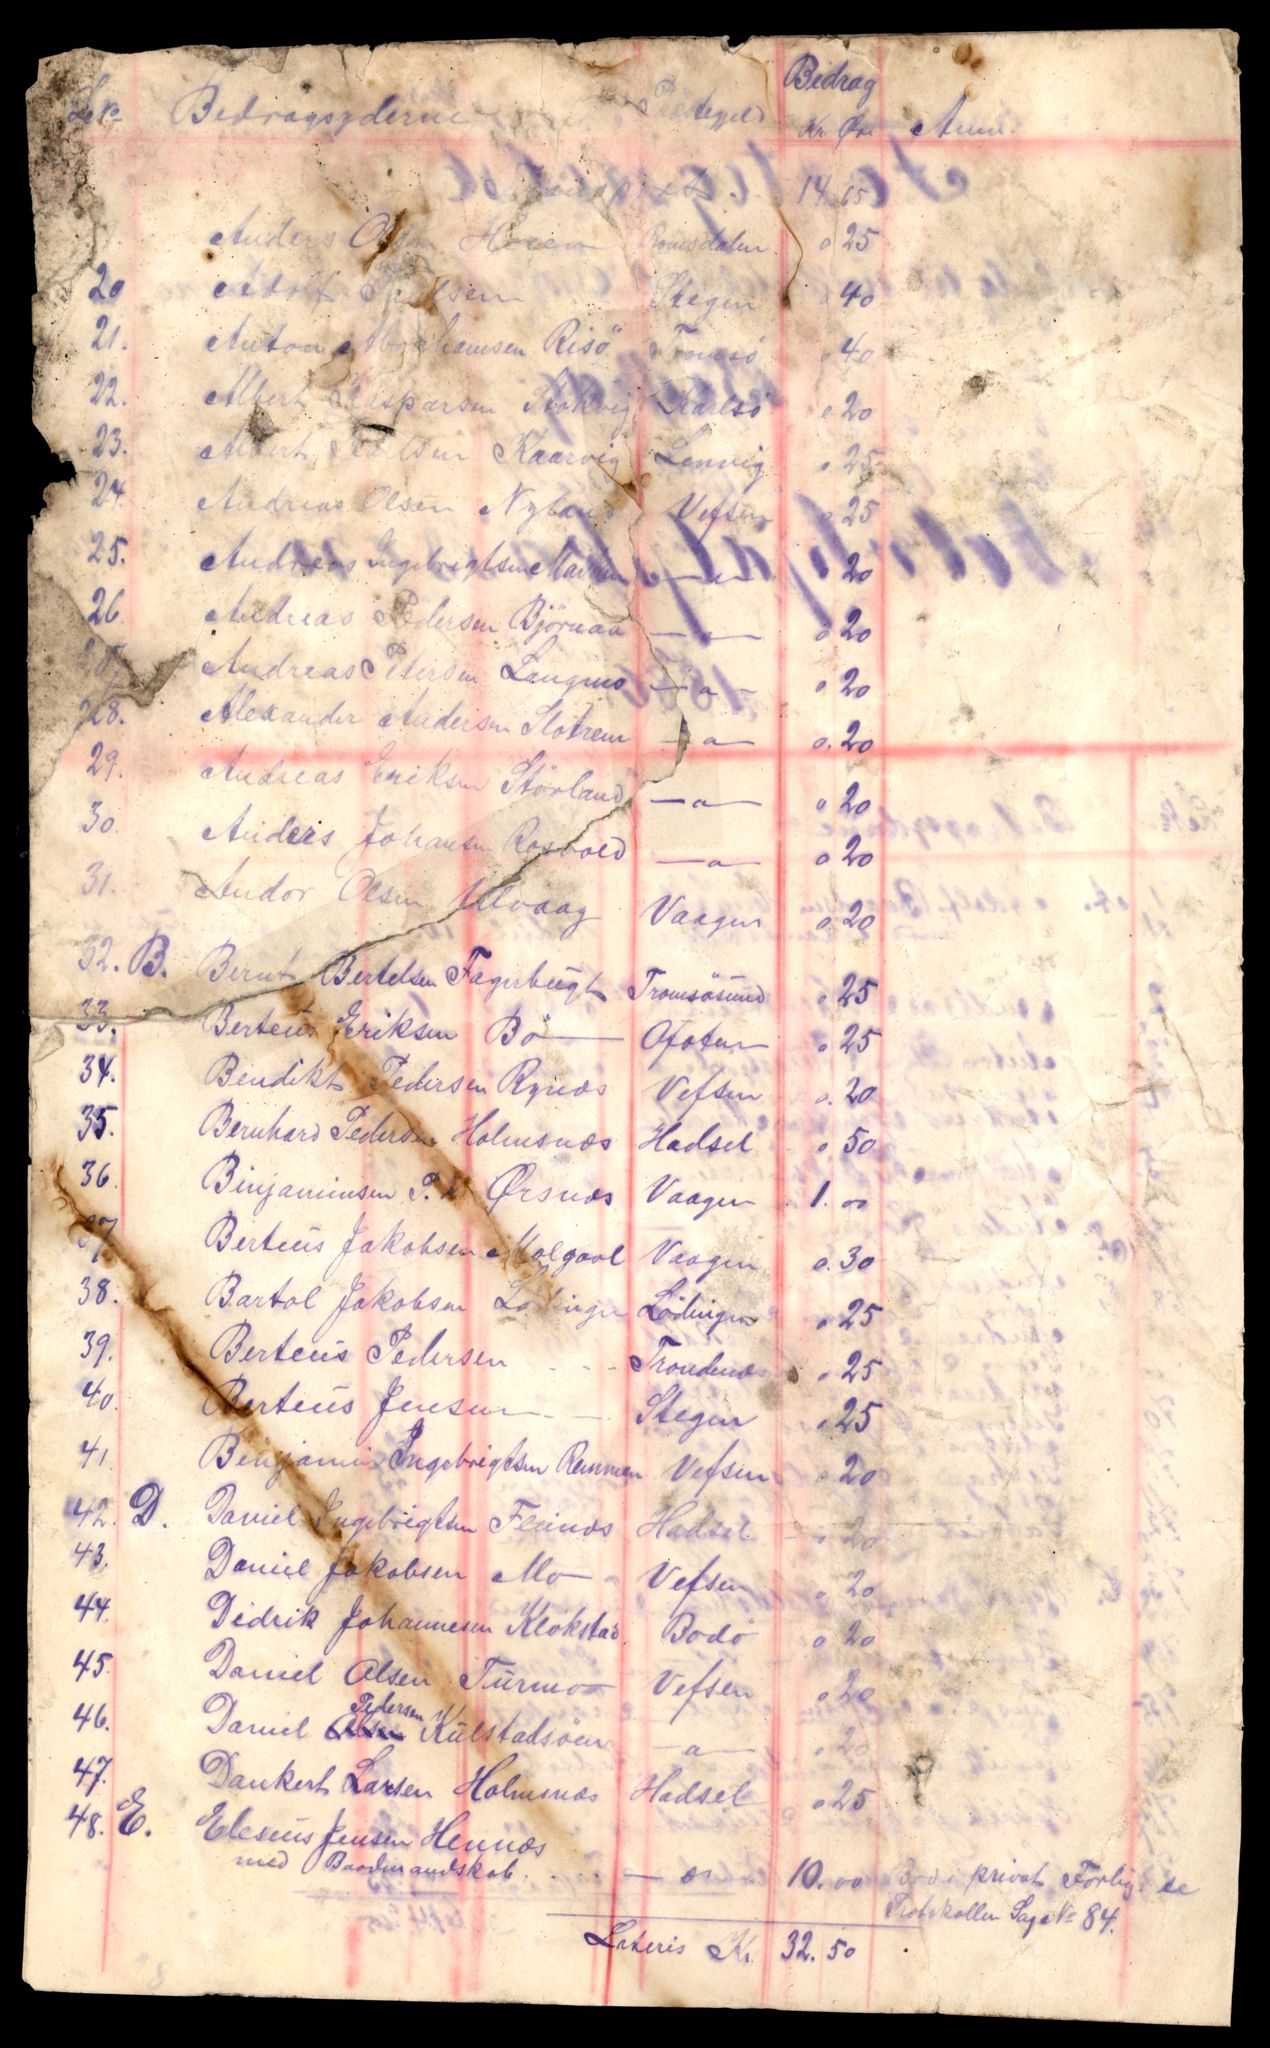 Bedrag
Bedragsyderne Præstegjeld Kr Øre Anm.
14.65
Anders Olsen Romsdalen 0 25
20 Adolf Stegen 0 40
21. Anton Abrahamsen Risö Tromsö 0 40
22. Albert Kaspersen Karlsö 0 20
23. Albert Kaarvig Lenvig 0 25
24. Andreas Olsen Nyland Vefsen 0 25
25. Andreas Ingebrigtsen — " — 0 20
26. Andreas Pedersen Björnaa — " — 0 20
Andreas Petersen Langmo — " — 0 20
28. Alexander Andersen Slotrem — " — 0.20
29. Andreas Eriksen Störland — " — 0 20
30. Anders Johansen Rosvold — " — 0 20
31. Andor Olsen Ulvaag Vaagen 0.20
32. B. Bernt Bertelsen Fagerbugt Tromsösund 0 25
33. Berteus Eriksen Bö — Ofoten 0 25
34. Bendikt Pedersen Rynes Vefsen 0.20
35. Bernhard Pedersen Holmsnæs Hadsel 0 50
36. Binjaminsen P. Ørsnæs Vaagen 1.00
37 Berteus Jakobsen Molgavl Vaagen 0.30
38. Bartol Jakobsen Lödingen Lödingen 0 25
39. Berteus Pedersen - - - Trondenæs 0 25
40. Berteus Jensen - - Stegen 0 25
41 Benjamin Ingebrigtsen Remmen Vefsen 0 20
42. D. Daniel Ingebrigtsen Fleinæs Hadsel 0 20
43. Daniel Jakobsen Mo — Vefsen 0 20
44. Didrik Johannesen Klokstad Bodö 0 20
45. Daniel Olsen Turmo Vefsen 0 20
Pedersen
46. Daniel Olsen Kulstadsöen — " — 0 20
47. Dankert Larsen Holmsnæs Hadsel 0 25
48. E. Eleseus Jensen Hennæs
med Baadmandskab. . . . — " — 10.00 Bod i privat Forlig se
Protokollen Sag No 84.
Lateris Kr. 32.50